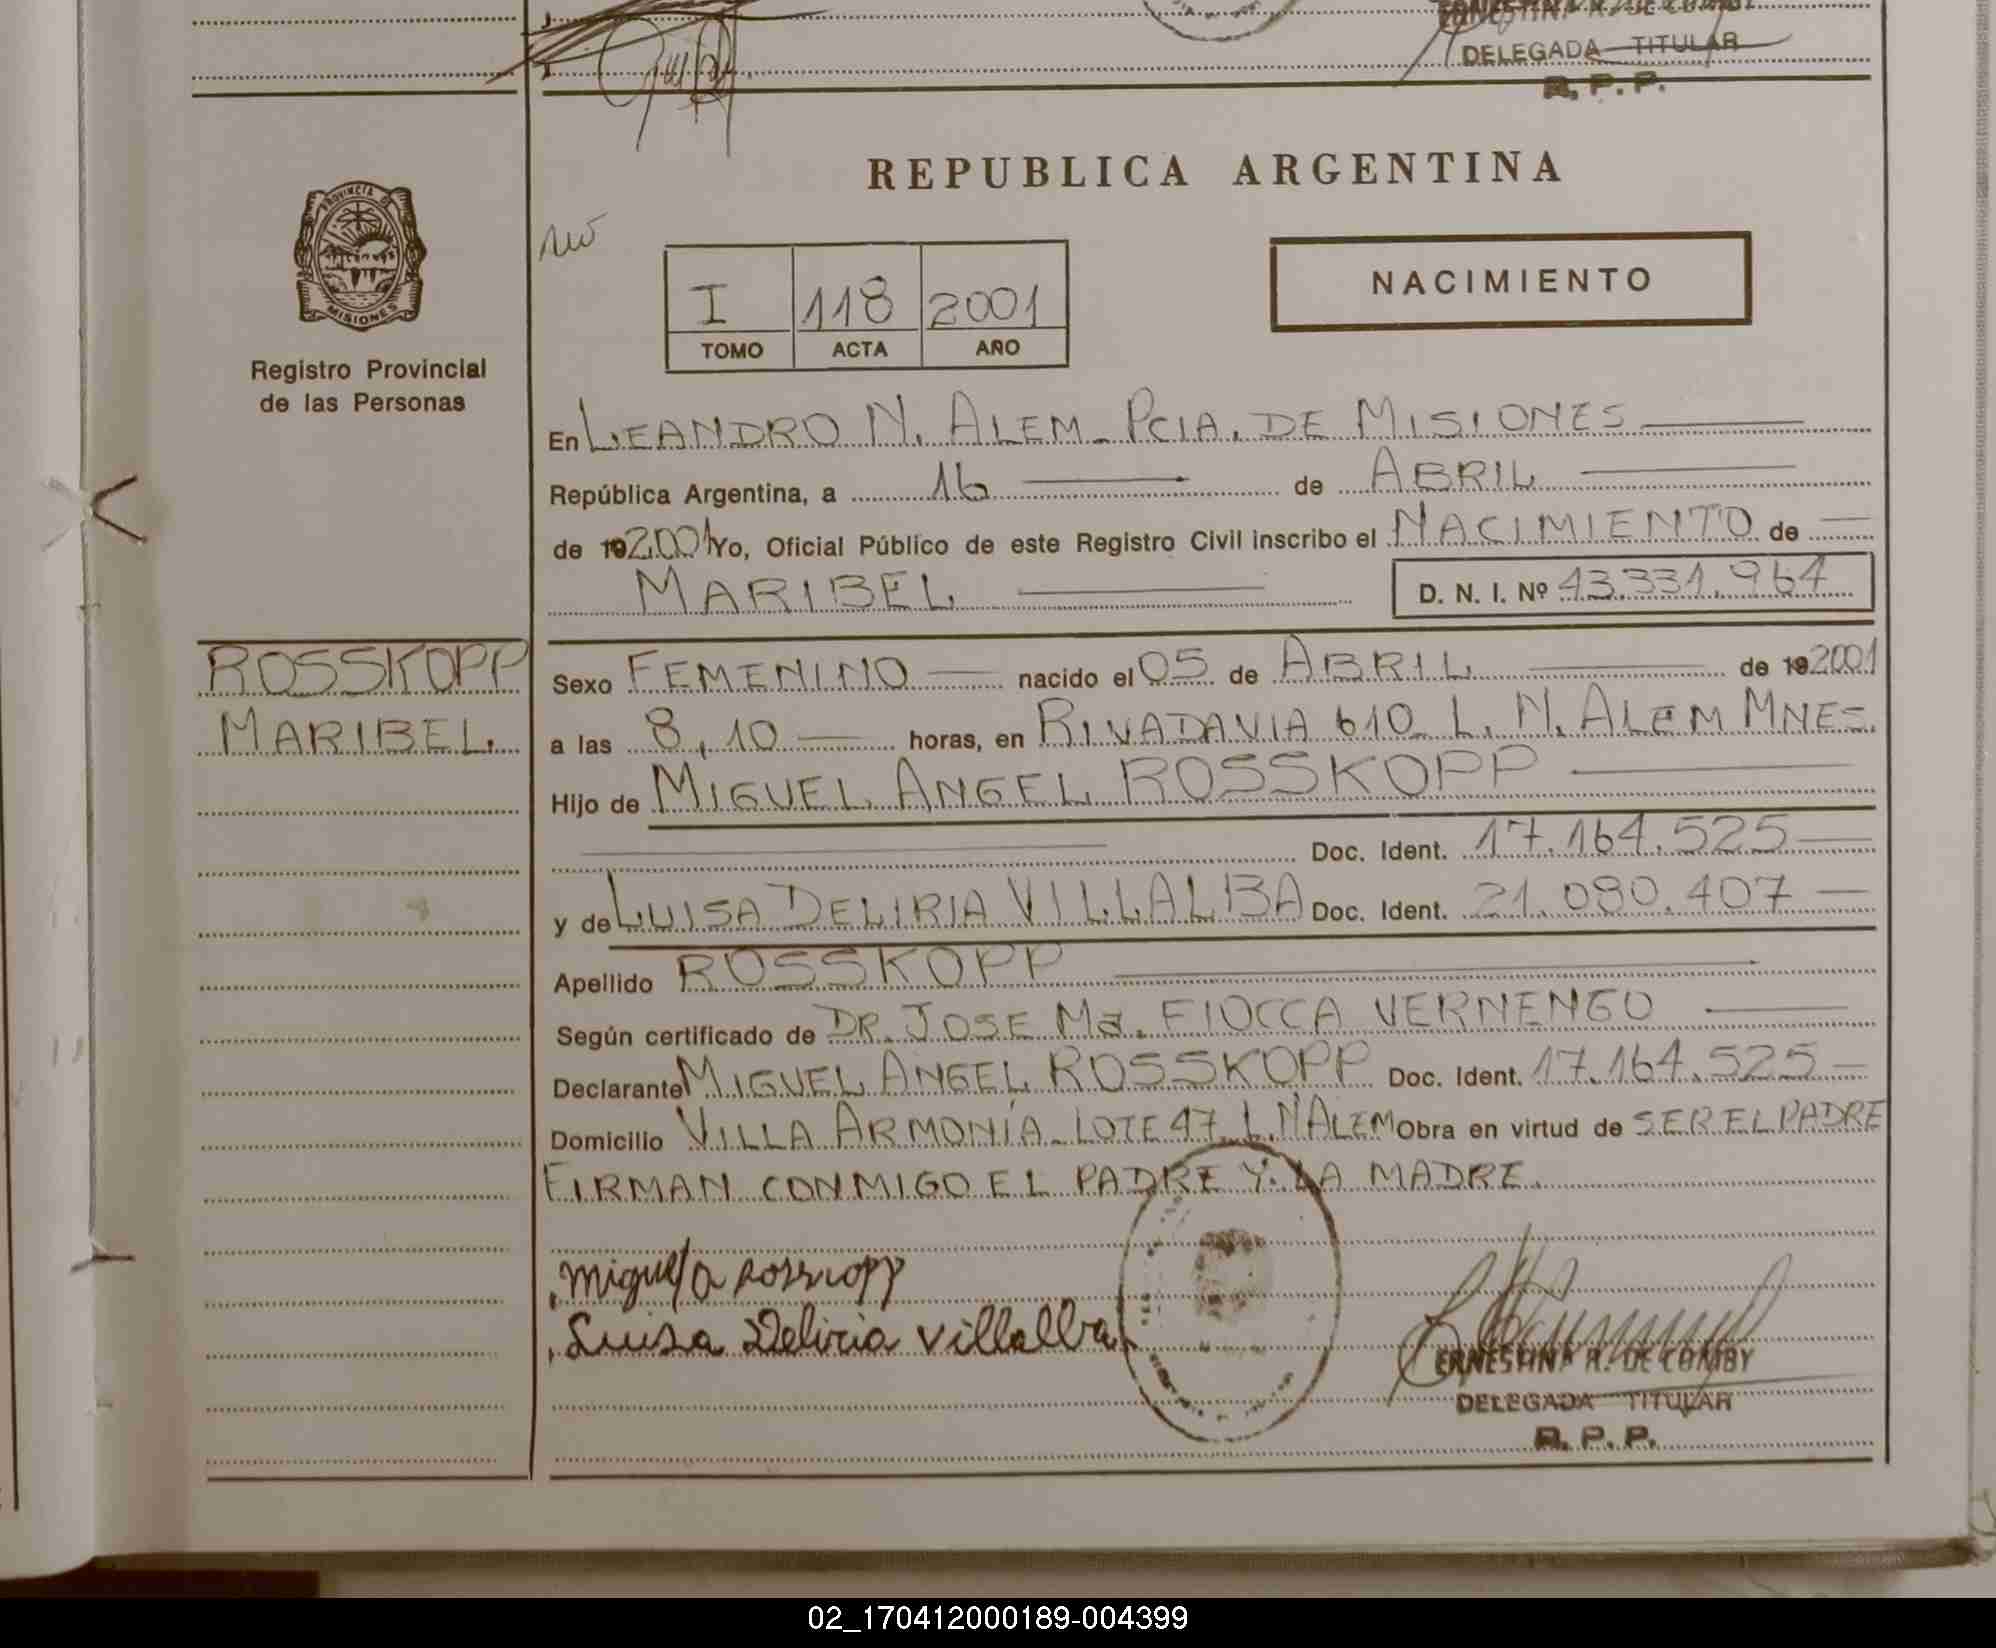 ERNESTINA R. DE COMBY
DELEGADA TITULAR
R. P. P.
REPUBLICA ARGENTINA
PROVINCIA DE
MISIONES
Registro Provincial
de las Personas
NACIMIENTO
I 118 2001
TOMO ACTA AÑO
En LEANDRO N. ALEM - PCIA. DE MISIONES
República Argentina, a 16 de ABRIL
de 192001 Yo, Oficial Público de este Registro Civil inscribo el NACIMIENTO de
MARIBEL D. N. I. Nº 43.331.964
ROSSKOPP
MARIBEL.
Sexo FEMENINO nacido el 05 de ABRIL de 192001
a las 8,10 horas, en RIVADAVIA 610 L. N. ALEM MNES.
Hijo de MIGUEL ANGEL ROSSKOPP
Doc. Ident. 17.164.525
y de LUISA DELIRIA VILLALBA Doc. Ident. 21.080.407
Apellido ROSSKOPP
Según certificado de DR. JOSE Ma. FIOCCA VERNENGO
Declarante MIGUEL ANGEL ROSSKOPP Doc. Ident. 17.164.525
Domicilio VILLA ARMONÍA - LOTE 47 L.N ALEM Obra en virtud de SER EL PADRE
FIRMAN CONMIGO EL PADRE Y LA MADRE.
Miguel A Rosskopp
Luisa Deliria Villalba
ERNESTINA R. DE COMBY
DELEGADA TITULAR
R. P. P.
02_170412000189-004399